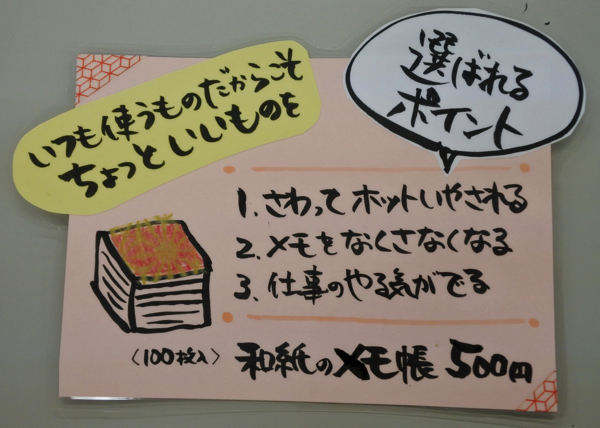 いつも使うものだからこそ
ちょっといいものを
選ばれる
ポイント
1. さわってホットいやされる
2. メモをなくさなくなる
3. 仕事のやる気がでる
〈100枚入〉
和紙のメモ帳 500円